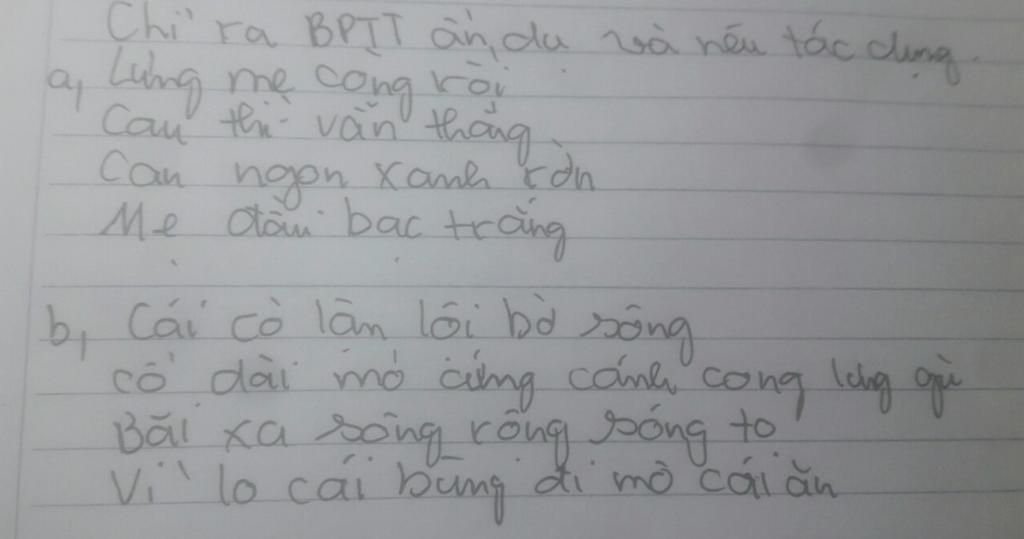 Chỉ ra BPTT ẩn dụ và nêu tác dụng.
a, Lưng mẹ còng rồi
Cau thì vẫn thẳng
Cau ngọn xanh rờn
Mẹ đầu bạc trắng
b, Cái cò lặn lội bờ sông
cổ dài mỏ cứng cánh cong lưng gù
Bãi xa sông rộng sóng to
Vì lo cái bụng đi mò cái ăn